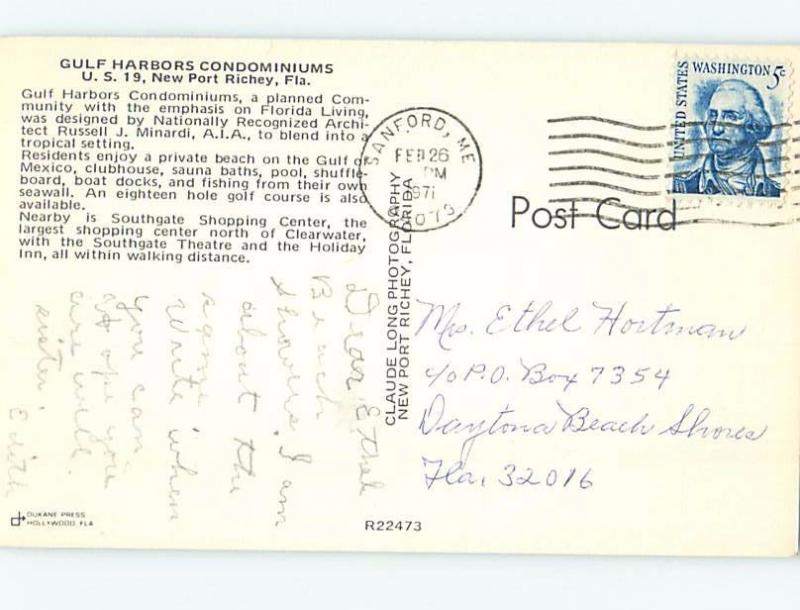 GULF HARBORS CONDOMINIUMS
U. S. 19, New Port Richey, Fla.
Gulf Harbors Condominiums, a planned Com-
munity with the emphasis on Florida Living,
was designed by Nationally Recognized Archi-
tect Russell J. Minardi, A.I.A., to blend into a
tropical setting.
Residents enjoy a private beach on the Gulf of
Mexico, clubhouse, sauna baths, pool, shuffle-
board, boat docks, and fishing from their own
seawall. An eighteen hole golf course is also
available.
Nearby is Southgate Shopping Center, the
largest shopping center north of Clearwater,
with the Southgate Theatre and the Holiday
Inn, all within walking distance.
SANFORD, ME
FEB 26
PM
1971
04073
UNITED STATES
WASHINGTON 5c
Post Card
CLAUDE LONG PHOTOGRAPHY
NEW PORT RICHEY, FLORIDA
Dear Ethel
Beach
Showers. I am
about the
same
Write when
you can
Hope you
are well.
sister.
Edith
Mrs. Ethel Hortman
c/o P.O. Box 7354
Daytona Beach Shores
Fla, 32016
DUKANE PRESS
HOLLYWOOD, FLA
R22473